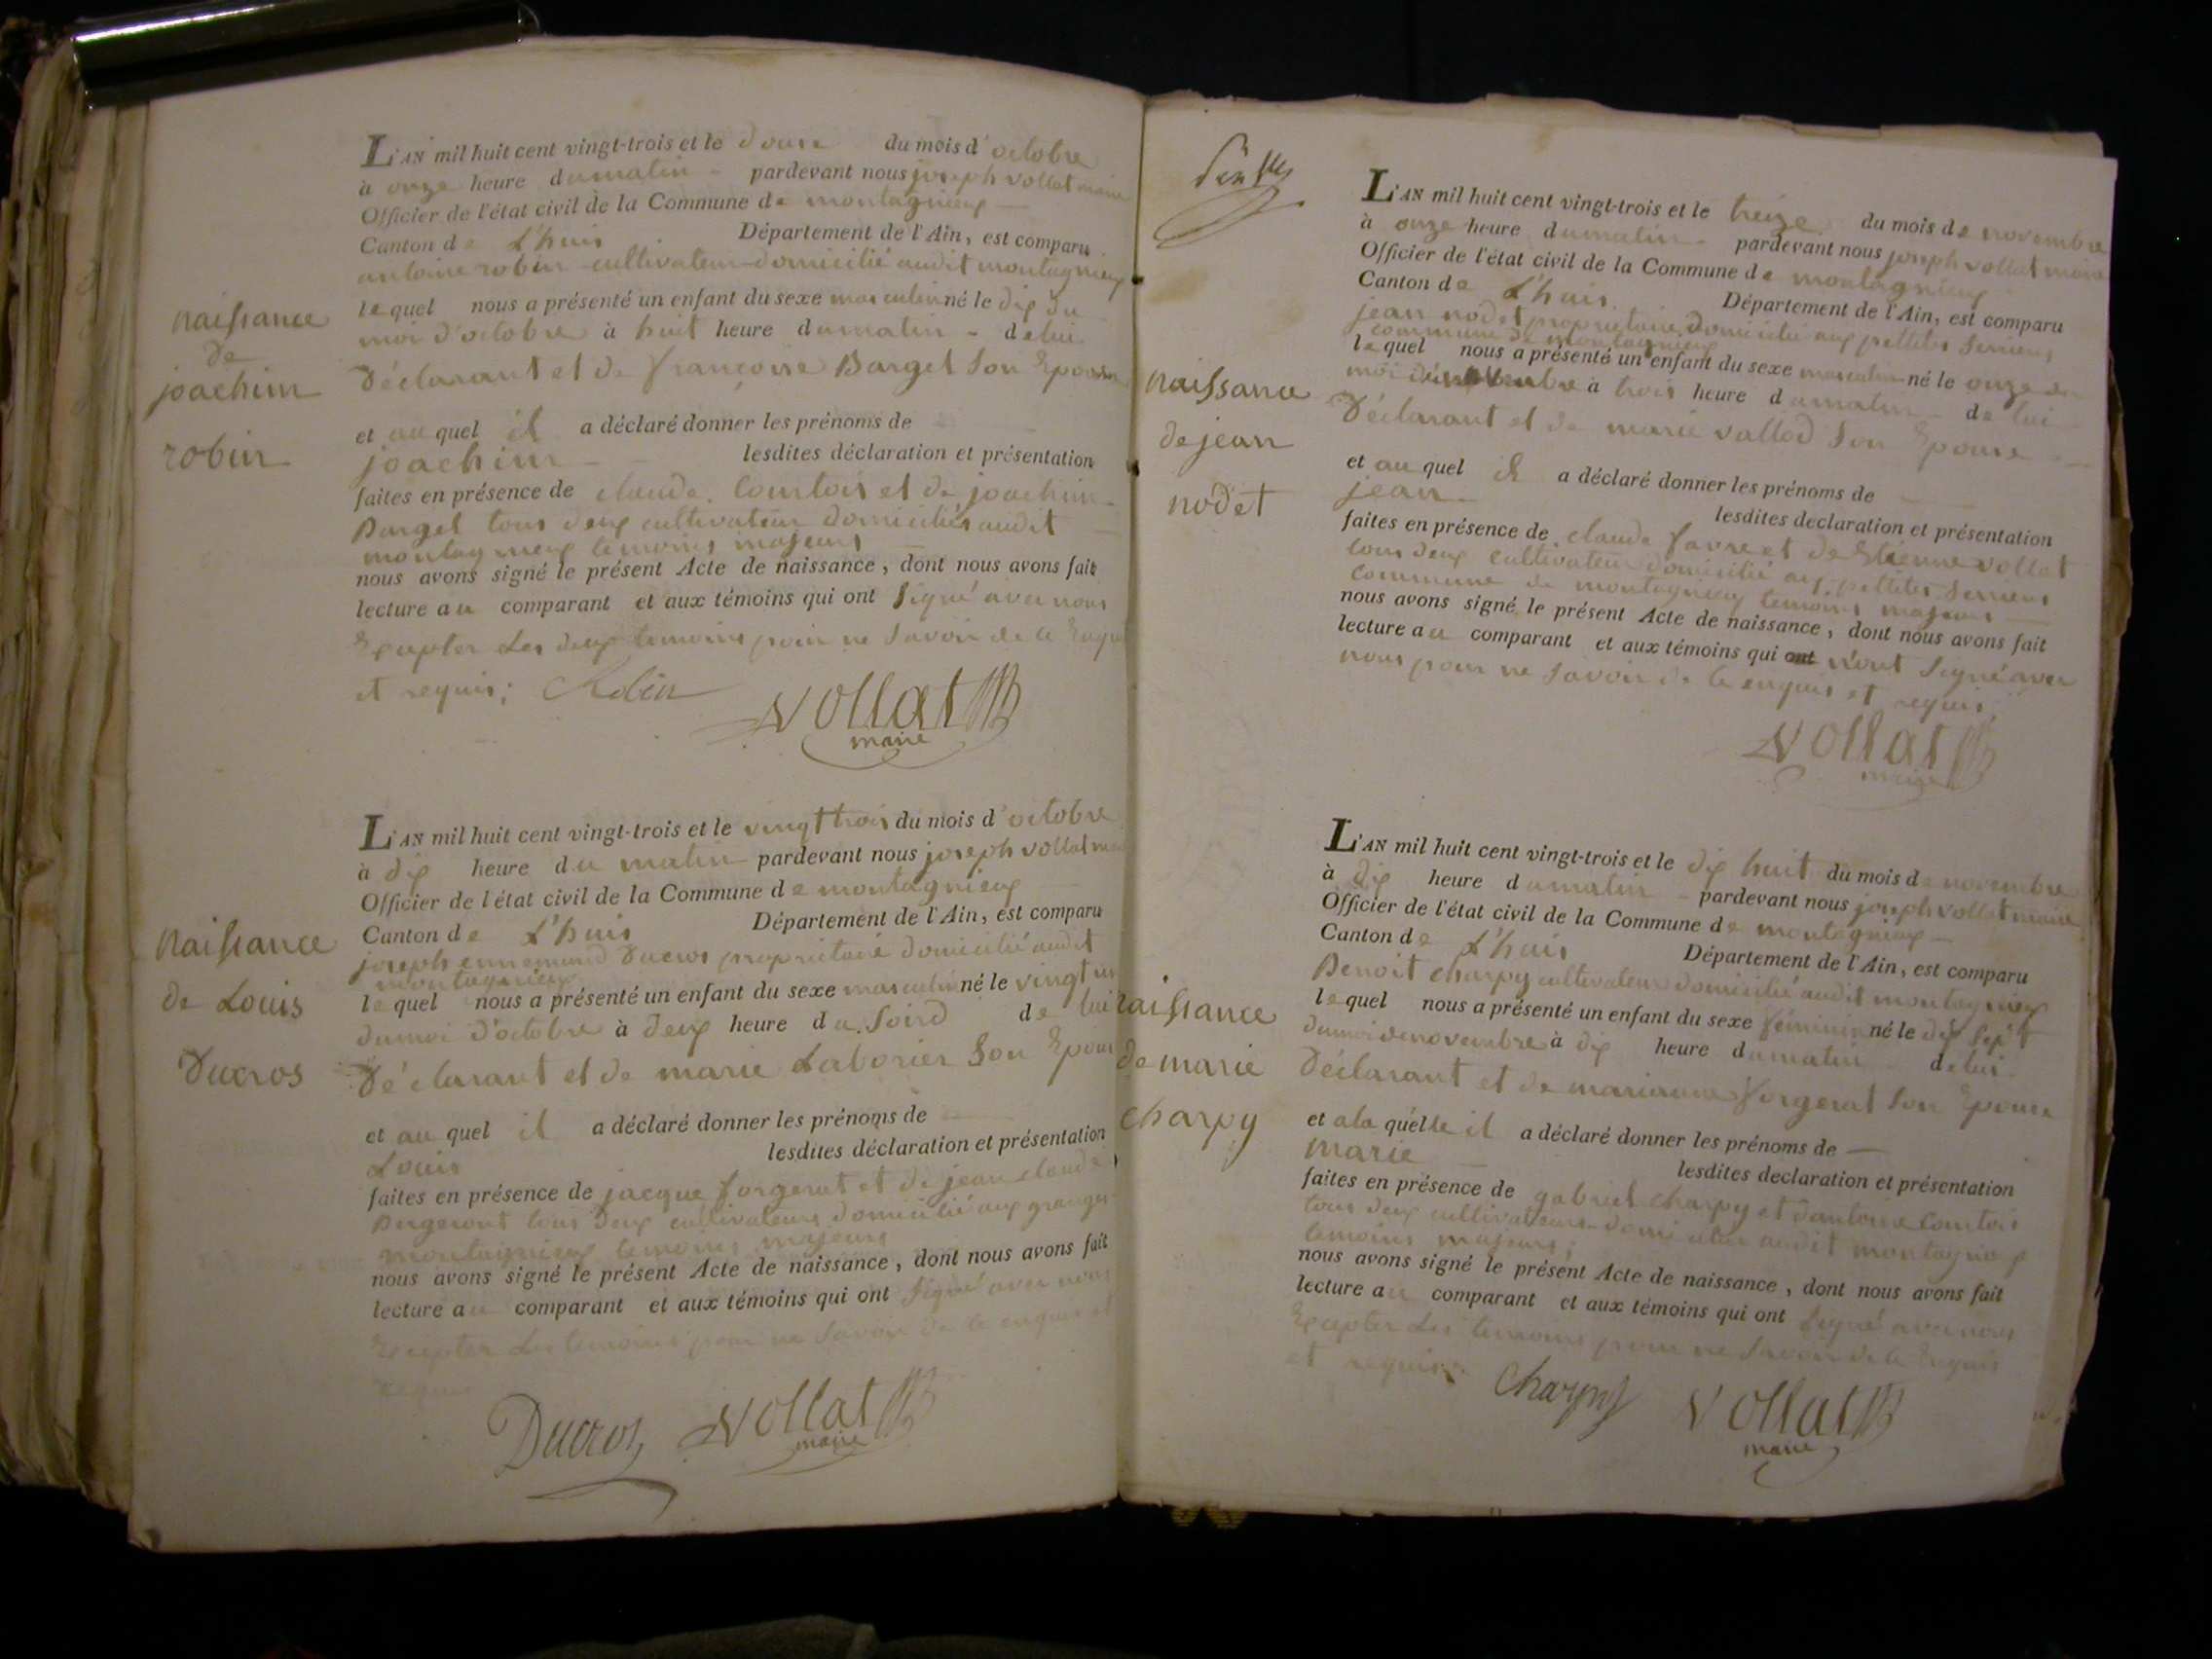 naissance
de
joachim
robin
L'AN mil huit cent vingt-trois et le douze du mois d'octobre
à onze heure du matin - pardevant nous joseph vollat maire
Officier de l'état civil de la Commune de montagnieux
Canton de L'huis Département de l'Ain, est comparu
antoine robin cultivateur domicilié audit montagnieux
lequel nous a présenté un enfant du sexe masculin né le dix du
moi d'octobre à huit heure du matin - de lui
Déclarant et de françoise Barget Son Epouse
et au quel il a déclaré donner les prénoms de
joachim lesdites déclaration et présentation
faites en présence de claude Comtois et de joachim
Barget tous deux cultivateur domiciliés audit
montagnieux temoins majeurs
nous avons signé le présent Acte de naissance, dont nous avons fait
lecture au comparant et aux témoins qui ont Signé avec nous
Exepter Les deux temoins pour ne Savoir de ce Enquis
et requis; Robin
vollat
maire
naissance
de Louis
Ducros
L'AN mil huit cent vingt-trois et le vingt trois du mois d'octobre
à dix heure du matin pardevant nous joseph vollat
Officier de l'état civil de la Commune de montagnieux
Canton de L'huis Département de l'Ain, est comparu
joseph ennemond Ducros propriétaire domicilié audit
montagnieux
lequel nous a présenté un enfant du sexe masculin né le vingt un
du moi d'octobre à deux heure du Soird de lui
Déclarant et de marie Laborier Son Epouse
et au quel il a déclaré donner les prénoms de
Louis lesdites déclaration et présentation
faites en présence de jacque forgerat et de jean claude
Bergeront tous deux cultivateurs domicilié aux granges
montagnieux temoins majeurs
nous avons signé le présent Acte de naissance, dont nous avons fait
lecture au comparant et aux témoins qui ont Signé avec nous
Excepter Les temoins pour ne Savoir de ce enquis et
requis
Ducros vollat
maire
naissance
de jean
nodet
L'AN mil huit cent vingt-trois et le treize du mois de novembre
à onze heure du matin - pardevant nous joseph vollat maire
Officier de l'état civil de la Commune de montagnieux
Canton de L'huis Département de l'Ain, est comparu
jean nodet propriétaire domicilié aux pettites Serriens
commune de montagnieux
lequel nous a présenté un enfant du sexe masculin né le onze du
moi de novembre à trois heure du matin - de lui
Déclarant et de marie vallod Son Epouse
et au quel il a déclaré donner les prénoms de
jean lesdites declaration et présentation
faites en présence de claude favre et de Etienne vollat
tous deux cultivateur domicilié aux pettites Serriens
commune de montagnieux temoins majeurs
nous avons signé le présent Acte de naissance, dont nous avons fait
lecture au comparant et aux témoins qui ont n'ont Signé avec
nous pour ne Savoir de ce enquis et requis
vollat
maire
naissance
de marie
charpy
L'AN mil huit cent vingt-trois et le dix huit du mois de novembre
à dix heure du matin - pardevant nous joseph vollat maire
Officier de l'état civil de la Commune de montagnieux
Canton de L'huis Département de l'Ain, est comparu
Benoit charpy cultivateur domicilié audit montagnieux
lequel nous a présenté un enfant du sexe féminin né le dix Sept
du moi de novembre à dix heure du matin de lui
Déclarant et de marianne forgerat Son Epouse
et a la quélle il a déclaré donner les prénoms de
marie lesdites declaration et présentation
faites en présence de gabriel charpy et d'antoine Comtois
tous deux cultivateurs domiciliés audit montagnieux
temoins majeurs;
nous avons signé le présent Acte de naissance, dont nous avons fait
lecture au comparant et aux témoins qui ont Signé avec nous
Exepter Les temoins pour ne Savoir de ce Enquis
et requis; Charpy vollat
maire